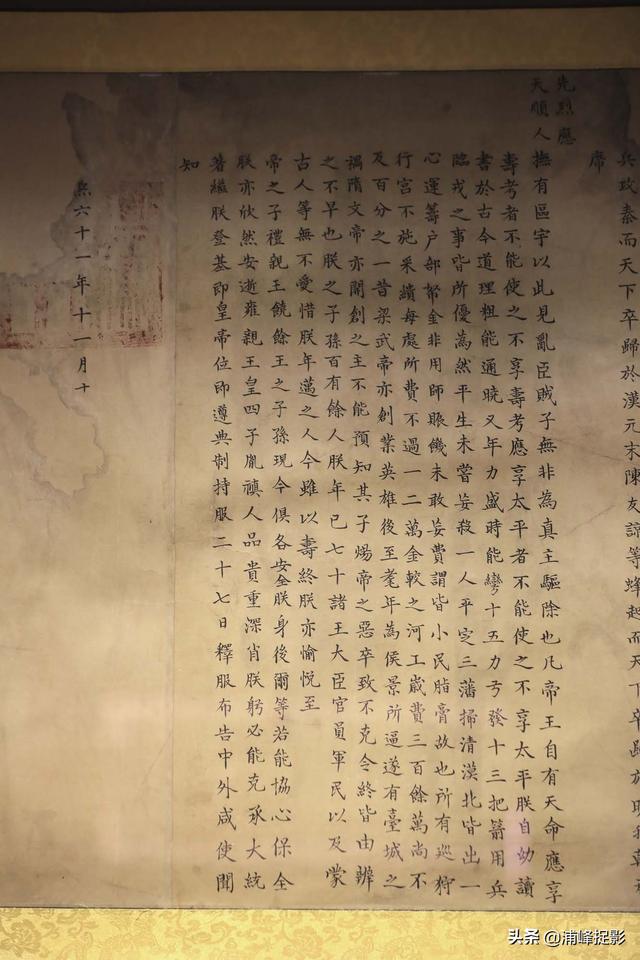 兵攻秦而天下卒歸於漢元末陳友諒等蜂起而天下卒歸於
席
先烈應
天順人撫有區宇以此見亂臣賊子無非為真主驅除也凡帝王自有天命應享
壽考者不能使之不享壽考應享太平者不能使之不享太平朕自幼讀
書於古今道理粗能通曉又年力盛時能彎十五力弓發十三把箭用兵
臨戎之事皆所優為然平生未嘗妄殺一人平定三藩掃清漠北皆出一
心運籌户部帑金非用師賑饑未敢妄費謂皆小民脂膏故也所有巡狩
行宮不施采繢每處所費不過一二萬金較之河工歲費三百餘萬尚不
及百分之一昔梁武帝亦創業英雄後至耄年為侯景所逼遂有臺城之
禍隋文帝亦開創之主不能預知其子煬帝之惡卒致不克令終皆由辨
之不早也朕之子孫百有餘人朕年已七十諸王大臣官員軍民以及蒙
古人等無不愛惜朕年邁之人今雖以壽終朕亦愉悅至
帝之子禮親王饒餘王之子孫現今俱各安全朕身後爾等若能協心保全
朕亦欣然安逝雍親王皇四子胤禛人品貴重深肖朕躬必能克承大統
著繼朕登基即皇帝位即遵典制持服二十七日釋服布告中外咸使聞
知
熙六十一年十一月十
头条 @浦峰捉影